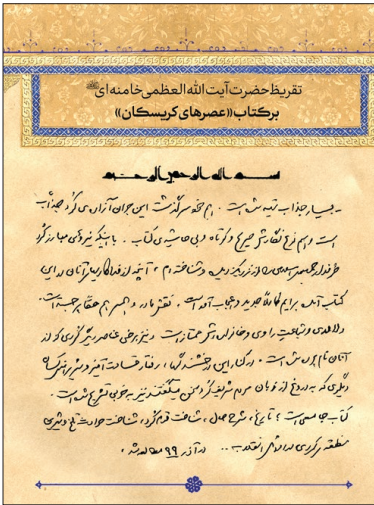 تقریظ حضرت آیت الله العظمی خامنه‌ای
بر کتاب «عصرهای کریسکان»
بسم الله الرحمن الرحیم
- بسیار جذاب تهیه شده است. هم خود سرگذشت این جوان آزاده‌ی کُرد جذّاب
است و هم نوع نگارش صریح و کوتاه و بی حاشیه‌ی کتاب. با اینکه نیروهای مبارز کُرد
طرفدار جمهوری اسلامی را از نزدیک دیده و شناخته‌ام، آنچه از فداکاریهای آنان در این
کتاب آمده برایم کاملاً جدید و اعجاب آور است. نقش مادر و همسر هم حقاً برجسته است.
دلاوری و شجاعت راوی و خانواده‌اش ممتاز است و نیز برخی عناصر دیگر کُرد که از
آنان نام برده شده است. در کنار این درخشندگیها، رفتار قساوت‌آمیز و شریرانه‌ی کسان
دیگری که به دروغ از زبان مردم شریف کُرد سخن میگفتند نیز به خوبی تشریح شده است.
کتاب جامعی است؛ تاریخ، شرح حال، شناخت قوم کُرد، شناخت حوادث تلخ و شیرین
منطقه‌ی کُردی در اوائل انقلاب... در آذر ۹۹ مطالعه شد.